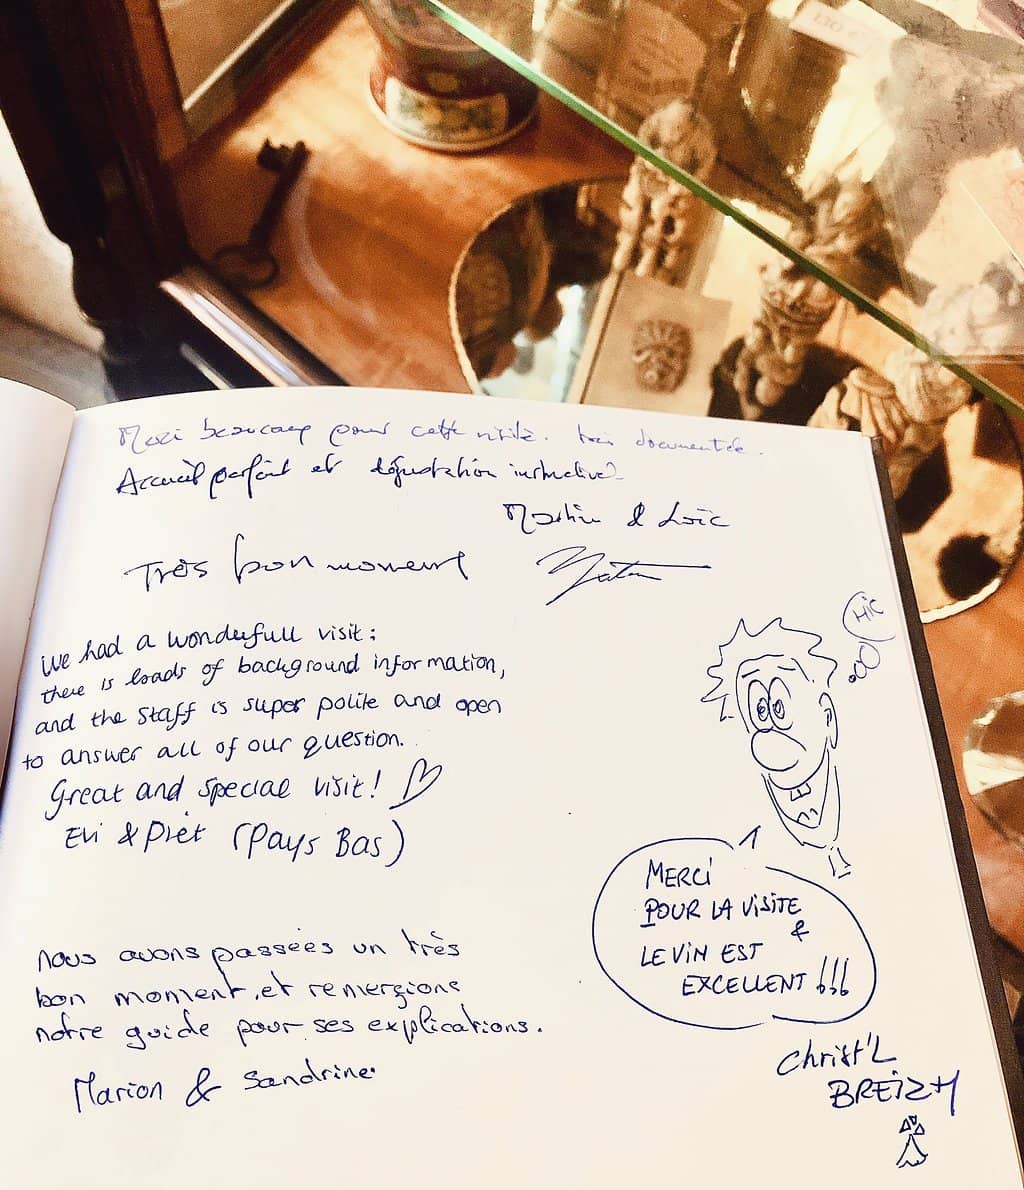 Merci beaucoup pour cette visite. très documentée.
Accueil parfait et dégustation instructive.
& Loïc
Très bon moment
We had a wonderfull visit:
there is loads of background information,
and the staff is super polite and open
to answer all of our question.
Great and special visit! ♡
Evi & Piet (Pays Bas)
HIC
MERCI
POUR LA VISITE
&
LE VIN EST
EXCELLENT !!!
Christ'L
BREIZH
nous avons passées un très
bon moment, et remerçions
notre guide pour ses explications.
Marion & Sandrine.